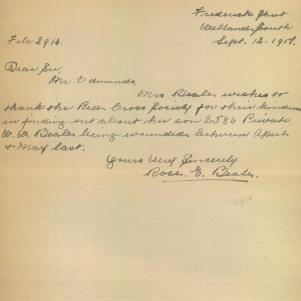 Frederick Street
Welland South
File 2914. Sept. 12. 1917.
Dear Sir,
Mr Edmunds
Mrs Beales wishes to
thank the Red Cross Society for their kindness
in finding out about her son 2586 Private
W. W Beales being wounded between April
& May last.
Yours Very Sincerely
Rose. E. Beales.